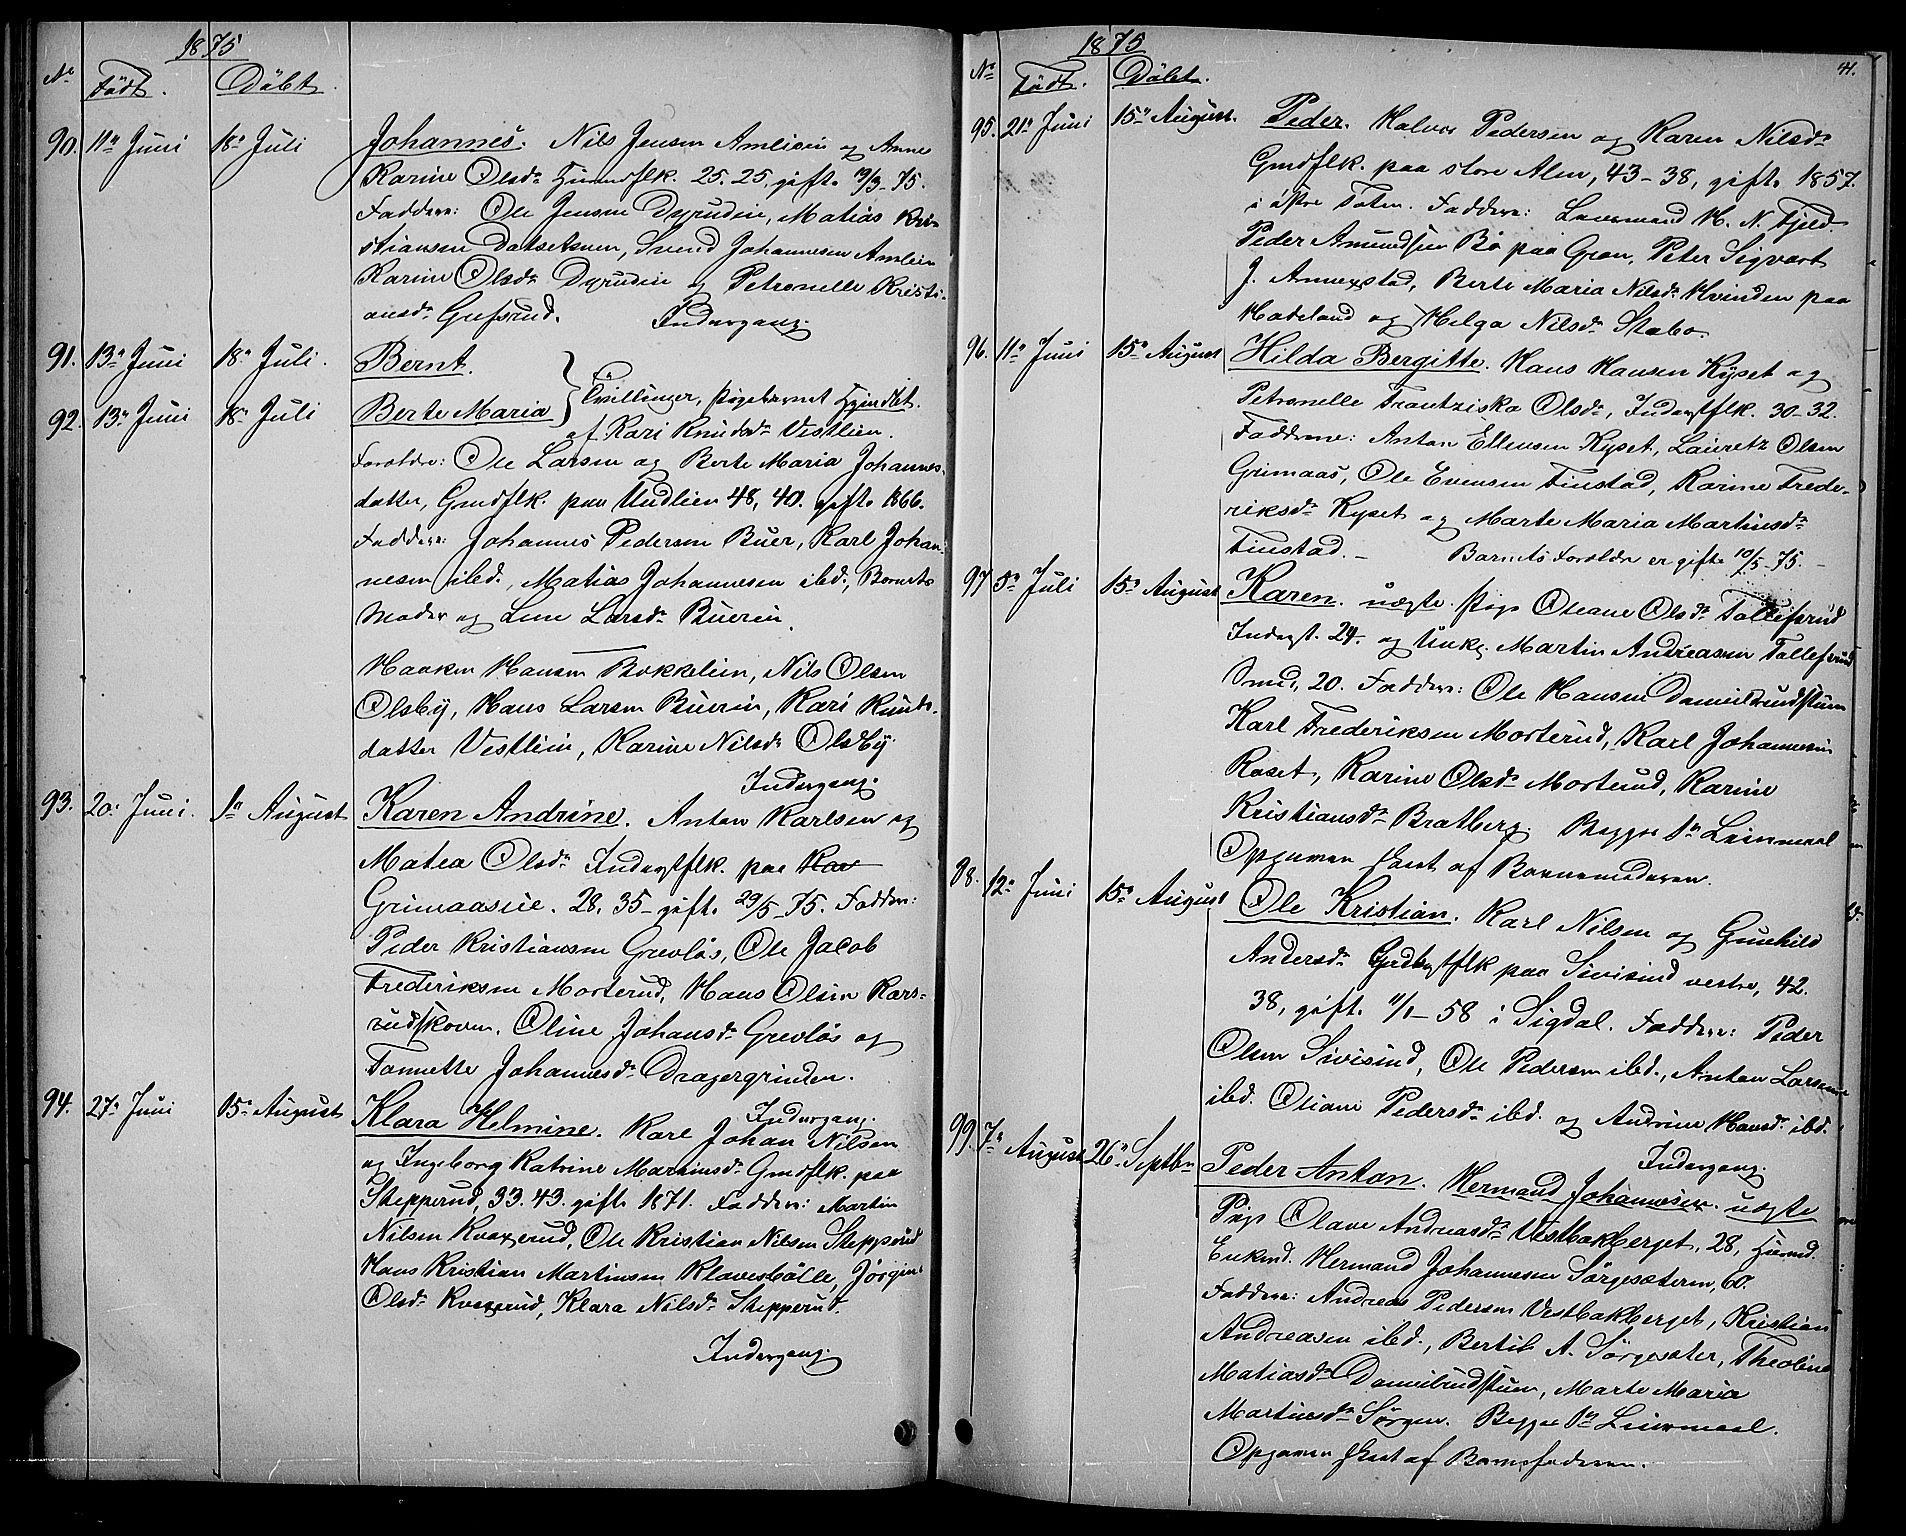 1875
No Født. Døbt.
90. 11te Juni 18de Juli Johannes. Nils Jensen Amlien og Anne
Karine Olsdr 25. 25. gift. 19/3 75.
Faddere: Ole Jensen Dyrudeie, Matias Kri-
stiansen Svend Johannesen Amlien
Karine Olsdr Dyrudeie og Petronelle Kristi-
ansdr Gufsrud. Indergang.
91. 13de Juni 18de Juli. Bernt.
92. 13de Juni 18de Juli Berte Maria } Tvillinger, Pigebarnet Hjemdbt.
af Kari Knudsdr Vestlien.
Forældre: Ole Larsen og Berte Maria Johannes-
datter, Gmdflk. paa Rudlien 48, 40. gift. 1866.
Faddere: Johannes Pedersen Buer, Karl Johan-
nesen ibd., Matias Johannesen ibd., Barnets
Moder og Lene Larsdr Buereie.
Haaken Hansen Bakkelien, Nils Olsen
Olsby, Hans Larsen Buereie, Kari Knuds-
datter Vestlien, Karine Nilsdr Olsby
Indergang.
93. 20de Juni. 1ste August Karen Andrine. Anton Karlsen og
Matea Olsdr Inderstflk. paa Kav
Grimaaseie. 28. 35 gift. 29/5 75. Faddere:
Peder Kristiansen Grevløs, Ole Jacob
Frederiksen Morterud, Hans Olsen Kars-
rudskoven. Oline Johansdr Grevløs og
Tonnette Johannesdr Dragergrinden.
Indergang.
94. 27de Juni 15de August Klara Helmine. Karl Johan Nilsen
og Ingeborg Katrine Martinsdr Gmdflk. paa
Stepperud, 33. 43. gift. 1871. Faddere: Martin
Nilsen Kvaxerud, Ole Kristian Nilsen Stepperud
Hans Kristian Martinsen Klavesbølle, Jørgine
Olsdr Kvaxerud, Klara Nilsdr Stepperud.
Indergang.
1875 41.
No Født. Døbt.
95. 21de Juni 15de August. Peder. Halvor Pedersen og Karen Nilsdr
Gmdflk. paa store Alm, 43-38, gift. 1857.
i Østre Toten. Faddere: Lensmand H. N. Fjeld
Peder Amundsen Bø paa Gran, Peter Sigvart
J. Annexstad, Berte Maria Nilsdr Hvinden paa
Hadeland og Helga Nilsdr Stabo.
96. 11te Juni 15de August Hilda Bergitte. Hans Hansen Kyset og
Petronelle Frantziska Olsdr, Inderstflk. 30-32.
Faddere: Anton Ellensen Kyset, Lauretz Olsen
Grimaas, Ole Evensen Finstad, Karine Frede-
riksdr Kyset og Marte Maria Martinsdr
Finstad. — Barnets Forældre er gifte 10/5 75. —
97 5te Juli 15de August Karen. uægte. Pige Oliane Olsdr Tollefsrud
Inderst. 24. og Unkg. Martin Andreasen Tollefsrud
Smed, 20. Faddere: Ole Hansen Danielrudstuen
Karl Frederiksen Morterud, Karl Johannesen
Roset, Karine Olsdr Morterud, Karine
Kristiansdr Bratberg. Begges 1ste Leiermaal
Opgaven skeet af Barnemoderen.
98. 12te Juni 15de August Ole Kristian. Karl Nilsen og Gunhild
Andersdr Gdbgflk paa Sivisind vestre, 42.
38, gift. 11/1 58 i Sigdal. Faddere: Peder
Olsen Sivisind, Ole Pedersen ibd., Anton Larsen
ibd. Oliane Pedersdr ibd. og Andrine Hansdr ibd.
Indergang.
99. 7de August 26de Septbr Peder Anton. Hermand Johannesen. uægte
Pige Olave Andreasdr Vestbakberget, 28,
Enkmd. Hermand Johannesen Sørgesæteren, 60.
Faddere: Andreas Pedersen Vestbakberget, Kristian
Andreasen ibd., Bertil A. Sørgesæter, Theoline
Matiasdr Danielrudstuen, Marte Maria
Martinsdr Sørgen. Begges 1ste Leiermaal.
Opgaven skeet af Barnefaderen.